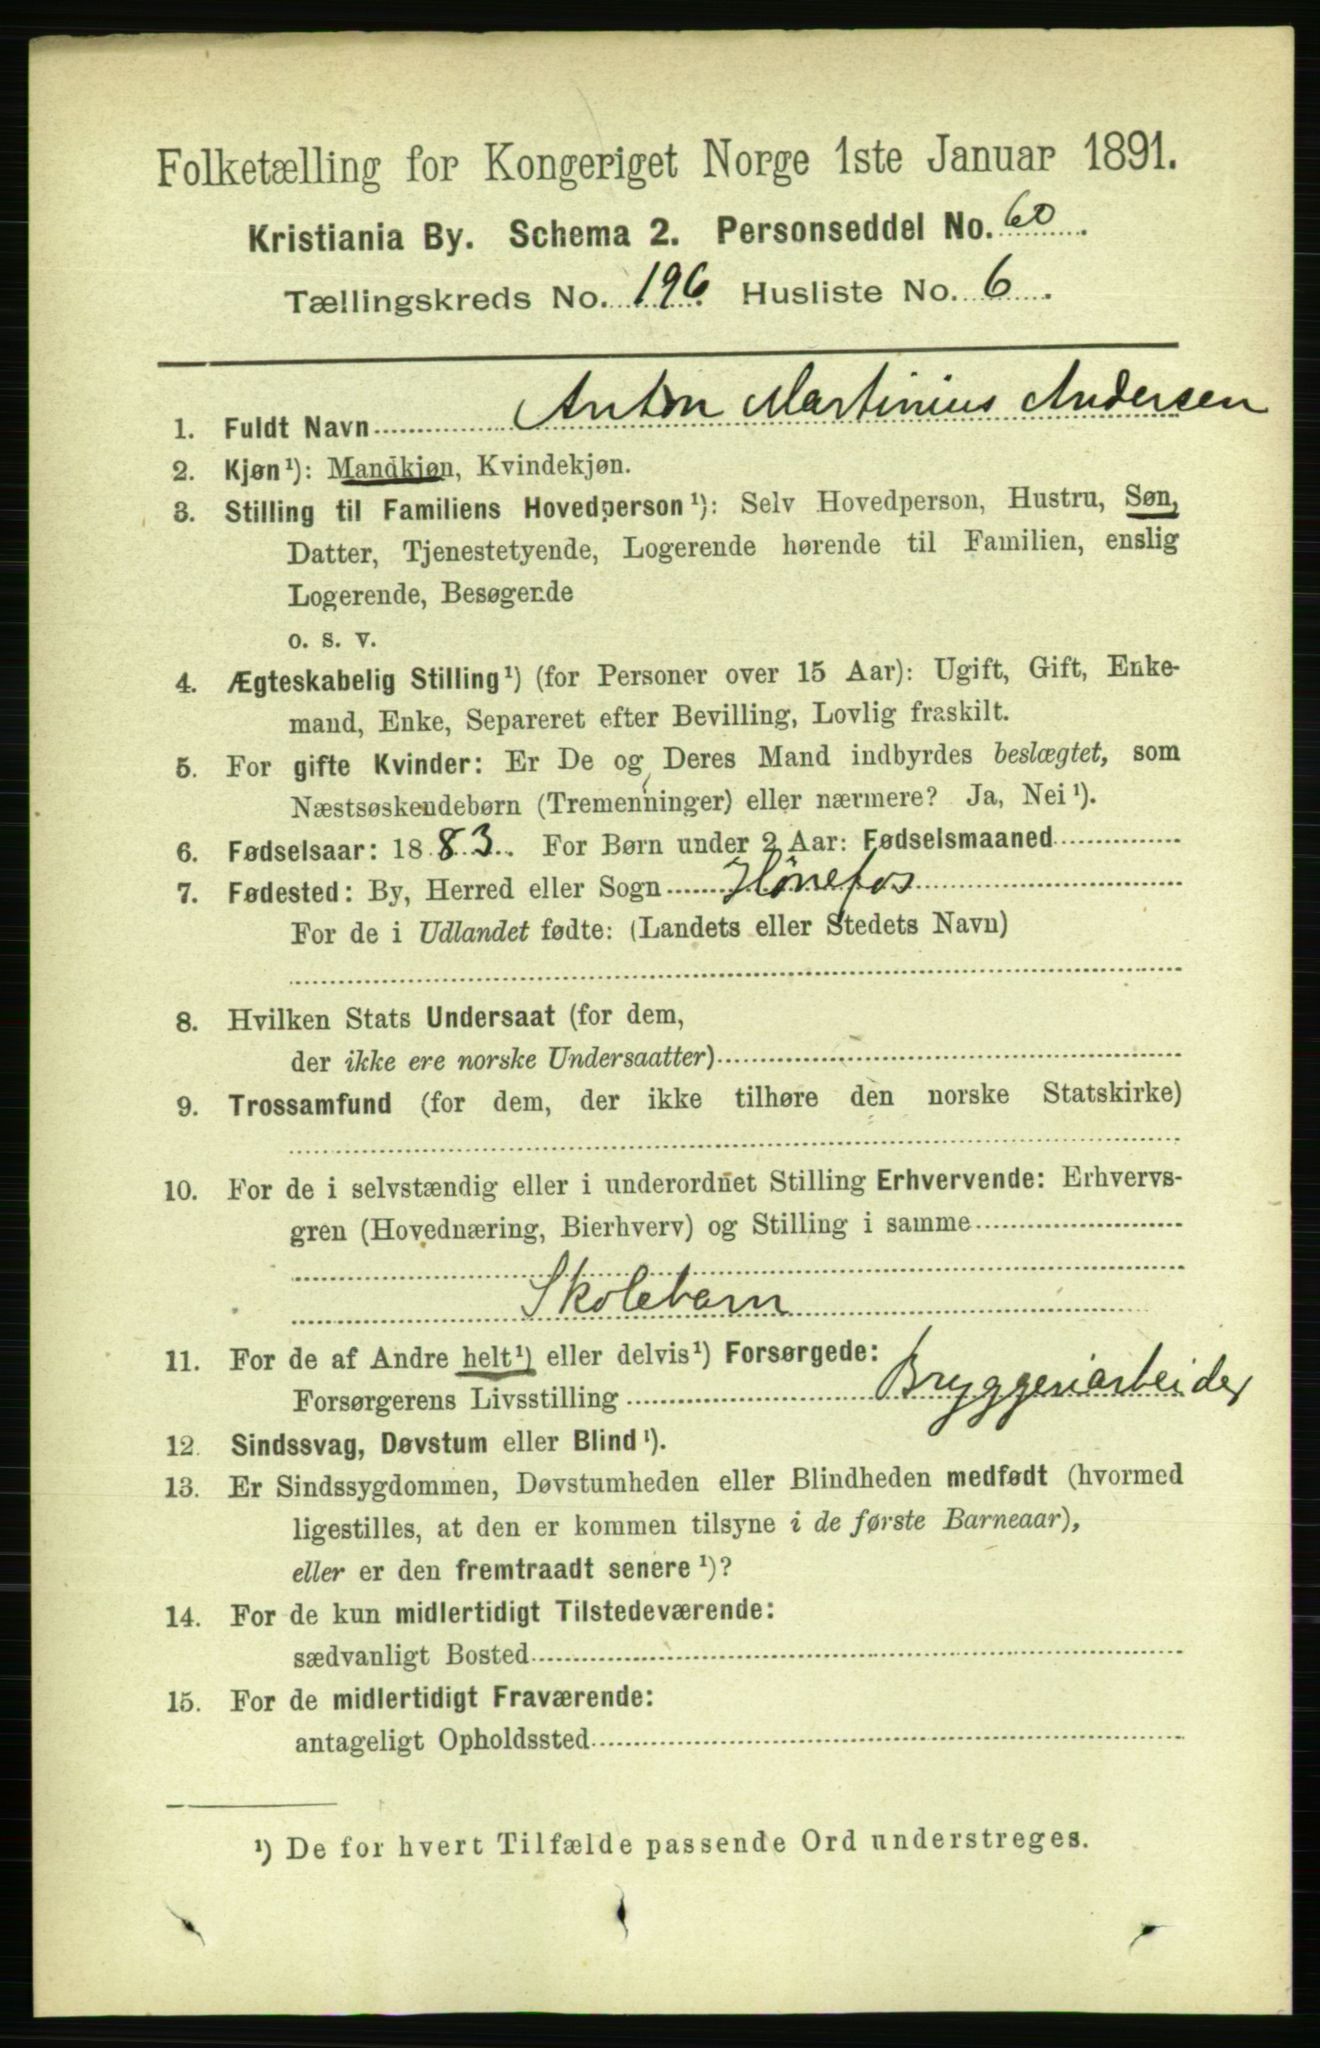 Folketælling for Kongeriget Norge 1ste Januar 1891.
Kristiania By. Schema 2. Personseddel No. 60.
Tællingskreds No. 196. Husliste No. 6.
1. Fuldt Navn Anton Martinius Andersen
2. Kjøn¹): Mandkjøn, Kvindekjøn.
3. Stilling til Familiens Hovedperson¹): Selv Hovedperson, Hustru, Søn,
Datter, Tjenestetyende, Logerende hørende til Familien, enslig
Logerende, Besøgende
o. s. v.
4. Ægteskabelig Stilling¹) (for Personer over 15 Aar): Ugift, Gift, Enke-
mand, Enke, Separeret efter Bevilling, Lovlig fraskilt.
5. For gifte Kvinder: Er De og Deres Mand indbyrdes beslægtet, som
Næstsøskendebørn (Tremenninger) eller nærmere? Ja, Nei¹).
6. Fødselsaar: 1883. For Børn under 2 Aar: Fødselsmaaned
7. Fødested: By, Herred eller Sogn Hönefos
For de i Udlandet fødte: (Landets eller Stedets Navn)
8. Hvilken Stats Undersaat (for dem,
der ikke ere norske Undersaatter)
9. Trossamfund (for dem, der ikke tilhøre den norske Statskirke)
10. For de i selvstændig eller i underordnet Stilling Erhvervende: Erhvervs-
gren (Hovednæring, Bierhverv) og Stilling i samme
Skolebarn
11. For de af Andre helt¹) eller delvis¹) Forsørgede:
Forsørgerens Livsstilling Bryggeriarbeider
12. Sindssvag, Døvstum eller Blind¹).
13. Er Sindssygdommen, Døvstumheden eller Blindheden medfødt (hvormed
ligestilles, at den er kommen tilsyne i de første Barneaar),
eller er den fremtraadt senere¹)?
14. For de kun midlertidigt Tilstedeværende:
sædvanligt Bosted
15. For de midlertidigt Fraværende:
antageligt Opholdssted
¹) De for hvert Tilfælde passende Ord understreges.